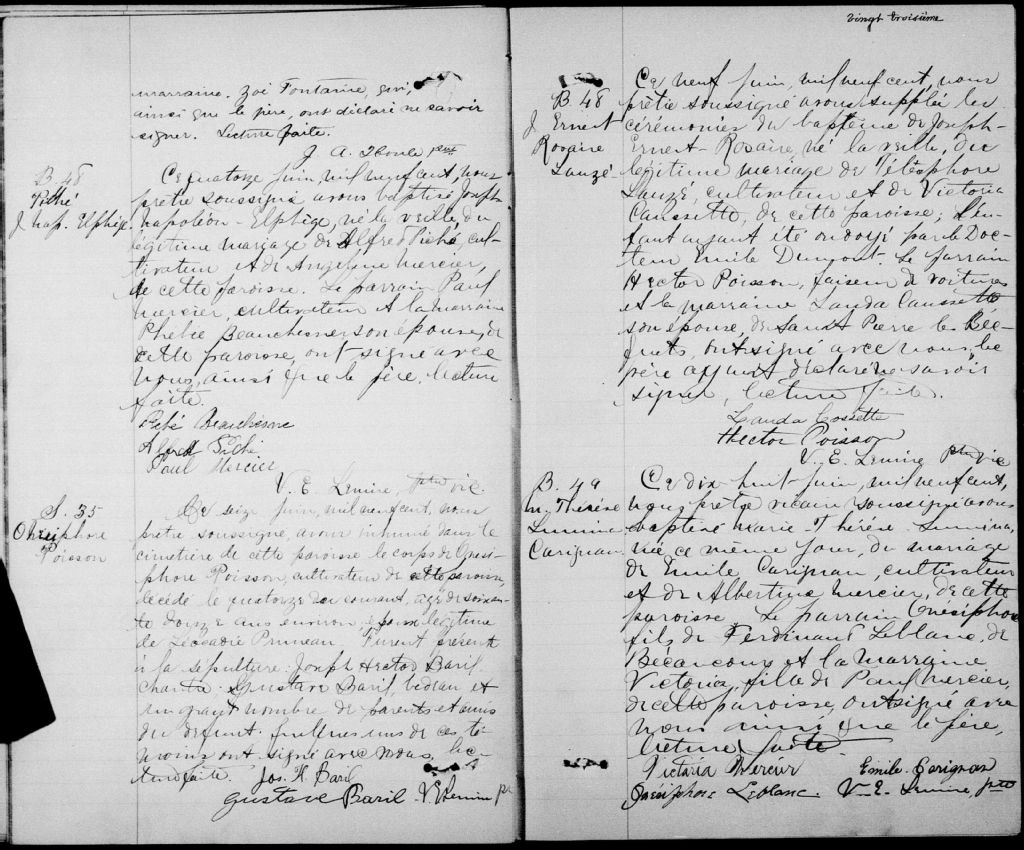 marraine. Zoé Fontaine, qui,
ainsi que le père, ont déclaré ne savoir
signer. Lecture faite.
J. A. ptre
B. 48
Piché
J. Nap. Elphège
Ce quatorze juin, mil neuf cent, nous
prêtre soussigné avons baptisé Joseph
Napoléon-Elphège, né la veille du
légitime mariage de Alfred Piché, cul-
tivateur et de Angeline Mercier,
de cette paroisse. Le parrain Paul
Mercier, cultivateur et la marraine
Phebée Beauchesne son épouse, de
cette paroisse, ont signé avec
nous, ainsi que le père. Lecture
faite.
Beauchesne
Alfred Piché
Paul Mercier
V. E. Lemire, ptre vic.
S. 35
Onésiphore
Poisson
Ce seize juin, mil neuf cent, nous
prêtre soussigné, avons inhumé dans le
cimetière de cette paroisse le corps de Onési-
phore Poisson, cultivateur de cette paroisse,
décédé le quatorze du courant, âgé de soixan-
te douze ans environ, époux légitime
de Léocadie Pruneau. Furent présents
à la sépulture: Joseph Hector Baril,
chantre. Gustave Baril, bedeau et
un grand nombre de parents et amis
du défunt. Quelques uns de ces té-
moins ont signé avec nous, lec-
ture faite. Jos. H. Baril
Gustave Baril. V. E. Lemire ptre
vingt troisième
B. 48
J. Ernest
Rosaire
Lauzé
Ce neuf juin, mil neuf cent, nous
prêtre soussigné avons suppléé les
cérémonies du baptême de Joseph-
Ernest-Rosaire, né la veille, du
légitime mariage de Télesphore
Lauzé, cultivateur et de Victoria
Caussette, de cette paroisse; l'en-
fant ayant été ondoyé par le Doc-
teur Emile Dumont. Le parrain
Hector Poisson, faiseur de voitures
et la marraine Landa Caussette
son épouse, de Saint Pierre les Béc-
quets, ont signé avec nous, le
père ayant déclaré ne savoir
signer, lecture faite.
Landa Cossette
Hector Poisson
V. E. Lemire Ptre vic
B. 49
M. Thérèse
Lumina
Carignan
Ce dix huit juin, mil neuf cent,
nous prêtre vicaire soussigné avons
baptisé Marie-Thérèse Lumina,
née ce même jour, du mariage
de Emile Carignan, cultivateur
et de Albertine Mercier, de cette
paroisse. Le parrain Onésiphore
fils de Ferdinand Leblanc, de
Bécancour et la marraine
Victoria, fille de Paul Mercier,
de cette paroisse, ont signé avec
nous ainsi que le père,
lecture faite.
Victoria Mercier
Emile Carignan
Onésiphore Leblanc. V. E. Lemire, ptre